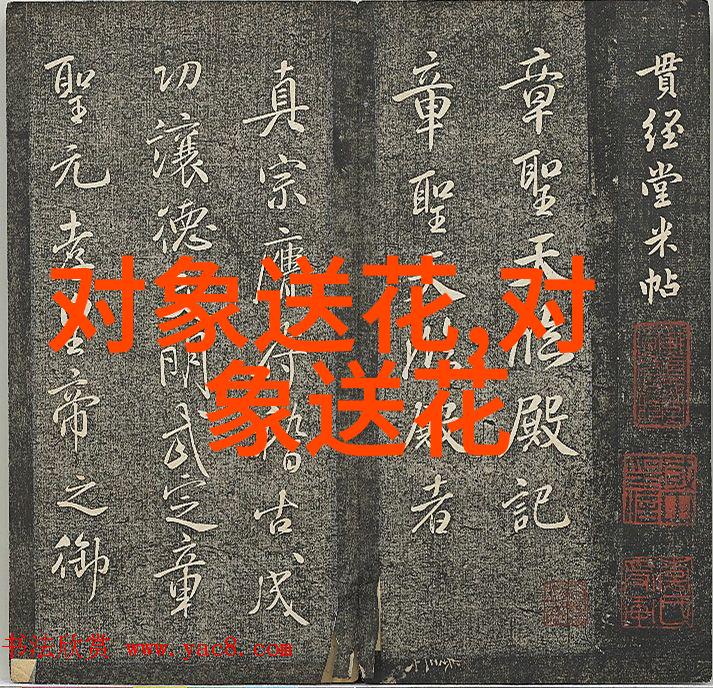 貫經堂米帖
章聖天臨殿記
章聖天殿者
真宗膺符稽古成
功讓德明武定章
聖元孝皇帝之御
对象送花,对
象送花
书法欣赏 www.yac8.com